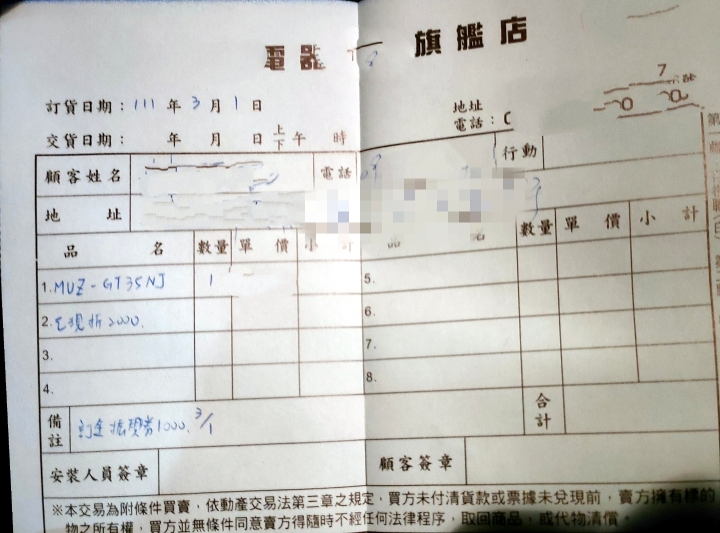 電器 旗艦店
訂貨日期：111年3月1日
地址
交貨日期： 年 月 日 上下午 時
電話：
顧客姓名 電話 行動
地 址
品 名 數量 單 價 小 計 品 名 數量 單 價 小 計
1. MUZ-GT35NJ 1 5.
2. 已現折2000. 6.
3. 7.
4. 8.
備註 訂金 振興券1000. 3/1 合計
安裝人員簽章 顧客簽章
※本交易為附條件買賣，依動產交易法第三章之規定，買方未付清貨款或票據未兌現前，賣方擁有標的
物之所有權，買方並無條件同意賣方得隨時不經任何法律程序，取回商品，或代物清償。